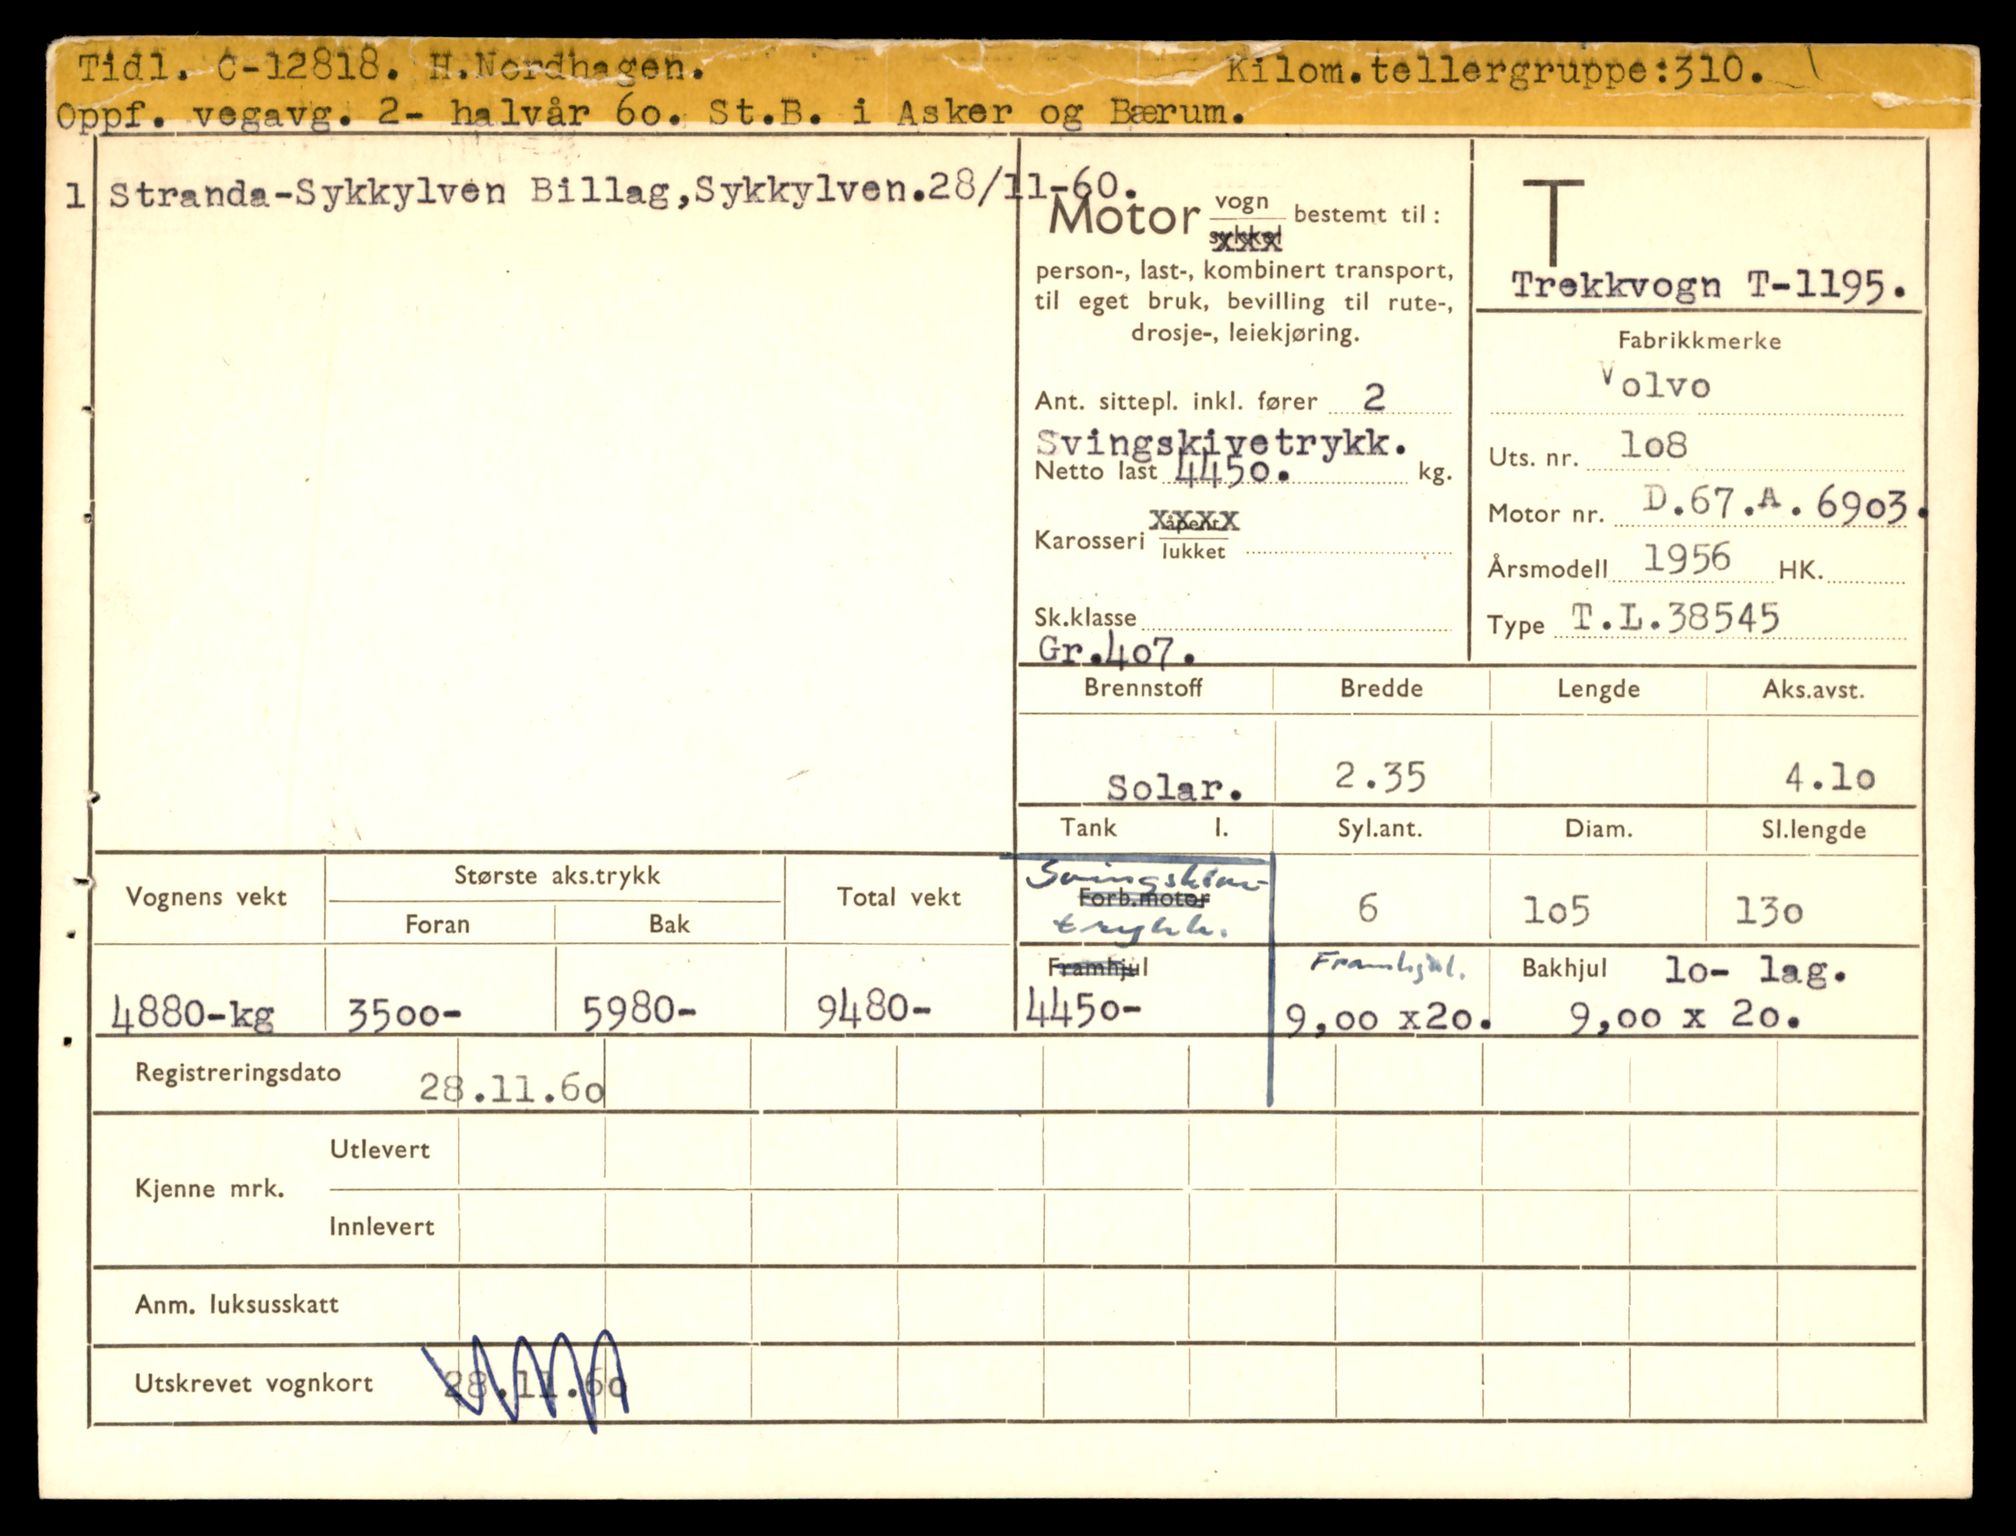 Tidl. C-12818. H.Nordhagen. Kilom.tellergruppe:310.
Oppf. vegavg. 2- halvår 60. St.B. i Asker og Bærum.
1 Stranda-Sykkylven Billag,Sykkylven.28/11-60.
Motor vogn sykkel bestemt til:
person-, last-, kombinert transport,
til eget bruk, bevilling til rute-,
drosje-, leiekjøring.
Ant. sittepl. inkl. fører 2
Svingskivetrykk.
Netto last 4450. kg.
Karosseri åpent lukket
Sk.klasse
Gr.407.
T
Trekkvogn T-1195.
Fabrikkmerke
Volvo
Uts. nr. 108
Motor nr. D.67.A.6903.
Årsmodell 1956 HK.
Type T.L.38545
Brennstoff Bredde Lengde Aks.avst.
Solar. 2.35 4.10
Tank l. Syl.ant. Diam. Sl.lengde
Svingskive-
Forb.motor
trykk.
6 105 130
Framhjul Framhjul. Bakhjul 10- lag.
4450- 9,00 x20. 9,00 x 20.
Vognens vekt Største aks.trykk Total vekt
Foran Bak
4880-kg 3500- 5980- 9480-
Registreringsdato 28.11.60
Kjenne mrk. Utlevert
Innlevert
Anm. luksusskatt
Utskrevet vognkort 28.11.60